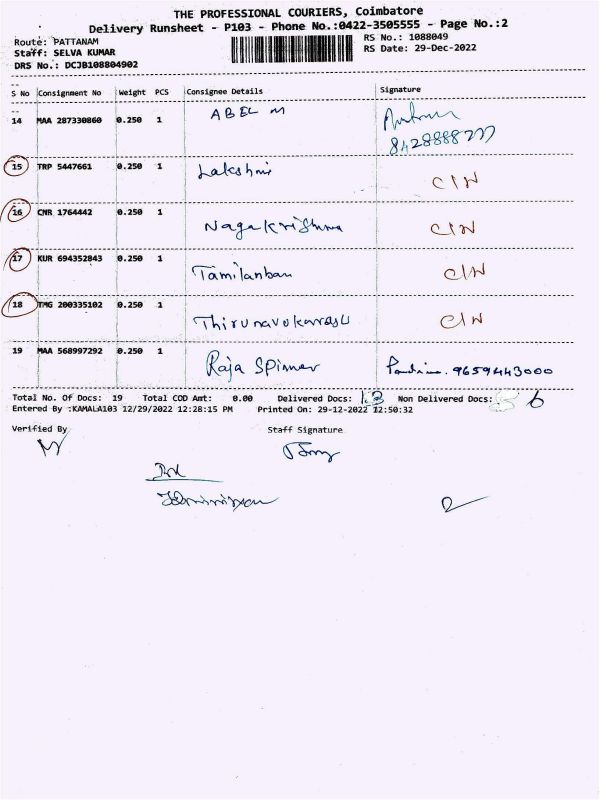 THE PROFESSIONAL COURIERS, Coimbatore
Delivery Runsheet - P103 - Phone No.:0422-3505555 - Page No.:2
Route: PATTANAM RS No.: 1088049
Staff: SELVA KUMAR RS Date: 29-Dec-2022
DRS No.: DCJB108804902
S No Consignment No Weight PCS Consignee Details Signature
14 MAA 287330860 0.250 1 ABEL M
15 TRP 5447661 0.250 1 Lakshmi C/N
16 CNR 1764442 0.250 1 Nagakrishna C/N
17 KUR 694352843 0.250 1 Tamilanban C/N
18 TMG 200335102 0.250 1 Thirunavukarasu C/N
19 MAA 568997292 0.250 1 Raja Spinner 9659443000
Total No. Of Docs: 19 Total COD Amt: 0.00 Delivered Docs: 13 Non Delivered Docs: 6
Entered By :KAMALA103 12/29/2022 12:28:15 PM Printed On: 29-12-2022 12:50:32
Verified By Staff Signature